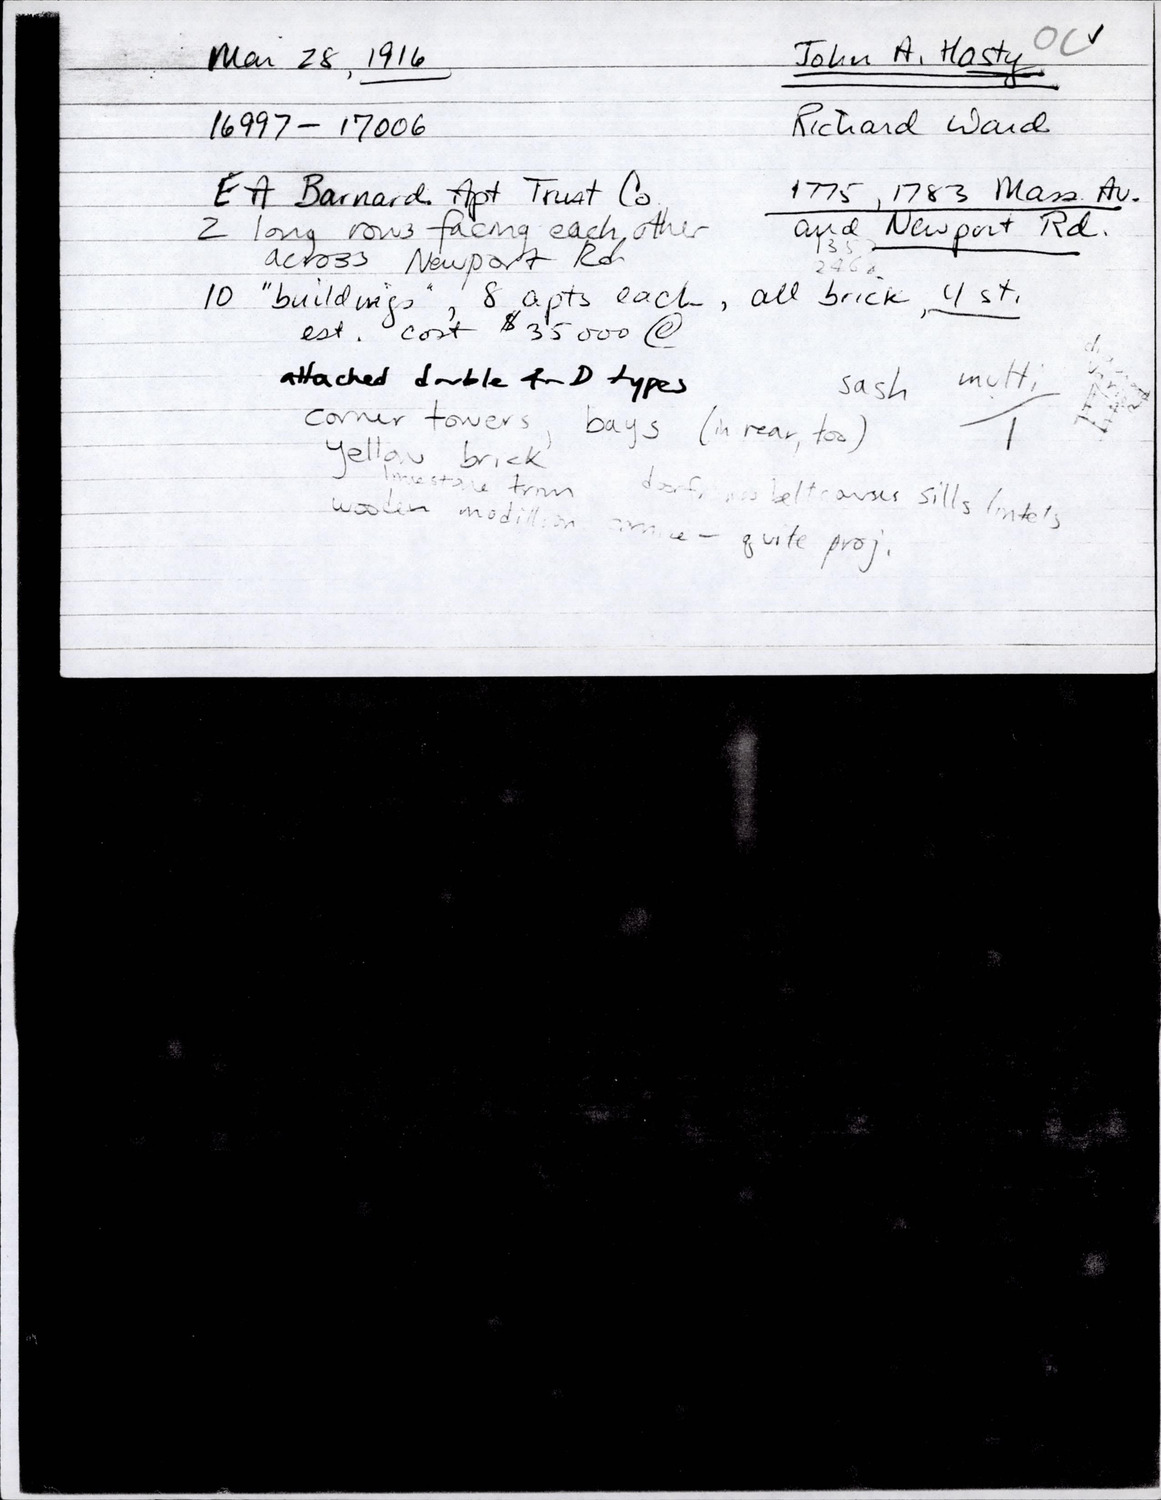 Mar 28, 1916
John A. Hasty OC ✓
16997 – 17006
Richard Ward
E A Barnard. Apt Trust Co.
1775, 1783 Mass. Av.
2 long rows facing each other
and Newport Rd.
across Newport Rd
10 "buildings", 8 apts each, all brick, 4 st.
est. cost $35000 @
attached double
types
sash multi/1
corner towers, bays (in rear, too)
yellow brick
limestone trim
beltcourses sills lintels
wooden modillion cornice – quite proj.